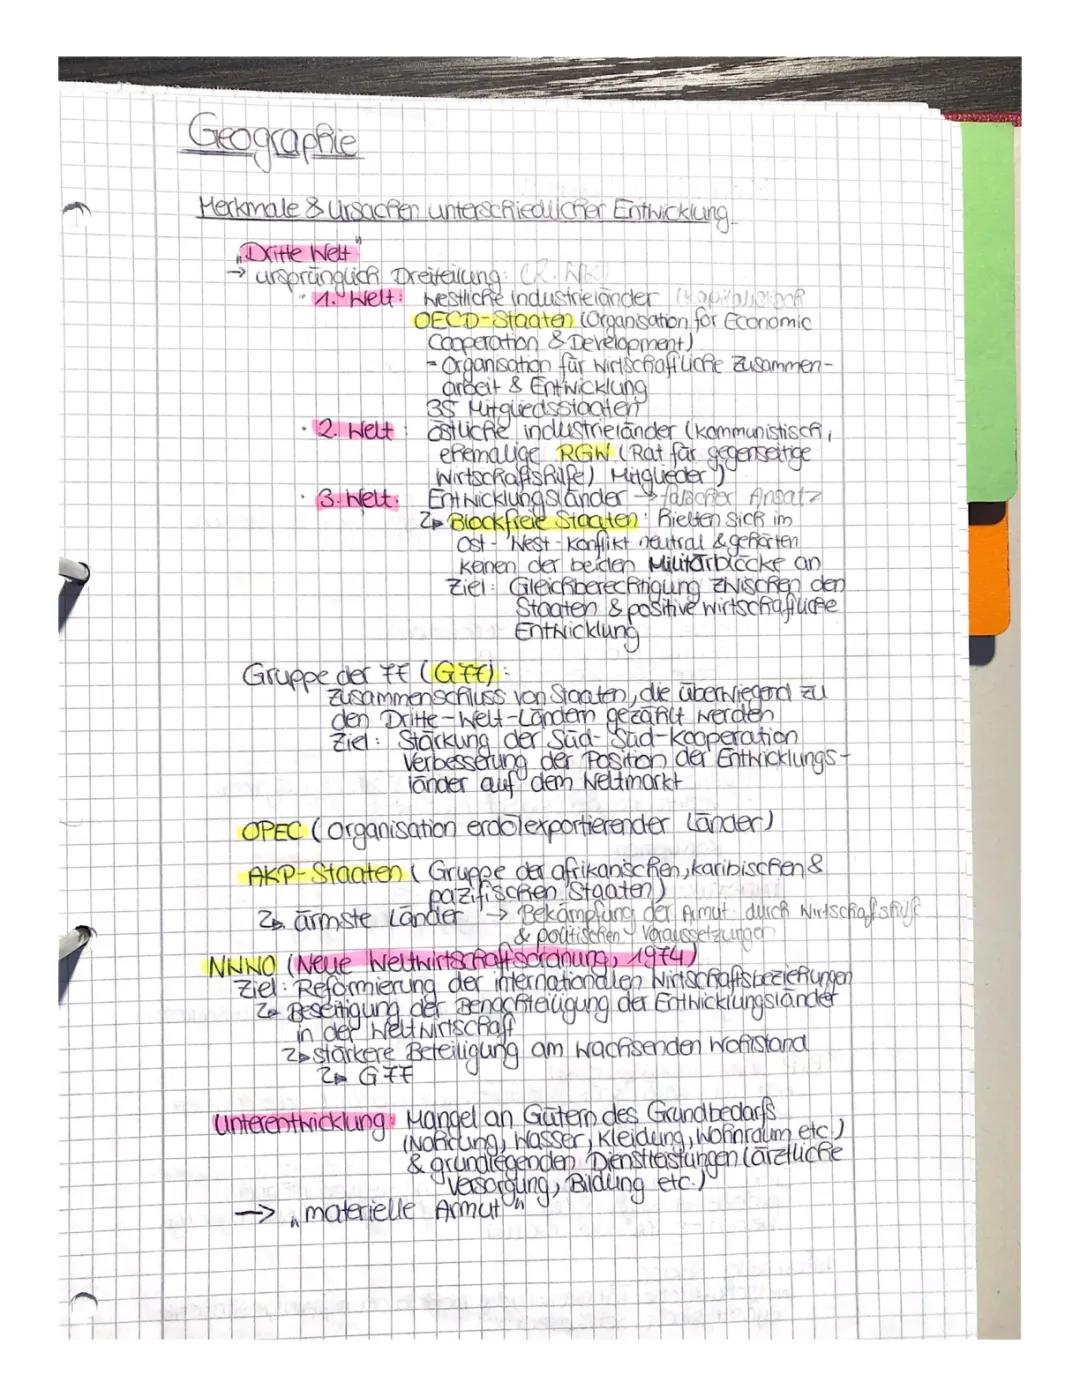 Geographie
Merkmale & Ursachen unterschiedlicher Entwicklung
"Dritte Welt"
→ ursprünglich Dreiteilung:
· 1. Welt: westliche Industrieländer (kapitalistisch
OECD-Staaten (Organisation for Economic
Cooperation & Development)
- Organisation für wirtschaftliche Zusammen-
arbeit & Entwicklung
35 Mitgliedsstaaten
· 2. Welt: östliche Industrieländer (kommunistisch,
ehemalige RGW (Rat für gegenseitige
Wirtschaftshilfe) Mitglieder)
· 3. Welt: Entwicklungsländer → falscher Ansatz
↳ Blockfreie Staaten: hielten sich im
Ost-West-Konflikt neutral & gehörten
keinen der beiden Militärblöcke an
Ziel: Gleichberechtigung zwischen den
Staaten & positive wirtschaftliche
Entwicklung
Gruppe der 77 (G77):
Zusammenschluss von Staaten, die überwiegend zu
den Dritte-Welt-Ländern gezählt werden
Ziel: Stärkung der Süd-Süd-Kooperation
Verbesserung der Position der Entwicklungs-
länder auf dem Weltmarkt
OPEC (Organisation erdölexportierender Länder)
AKP-Staaten (Gruppe der afrikanischen, karibischen &
pazifischen Staaten)
↳ ärmste Länder → Bekämpfung der Armut durch Wirtschaftshilfe
& politischen Voraussetzungen
NWWO (Neue Weltwirtschaftsordnung, 1974)
Ziel: Reformierung der internationalen Wirtschaftsbeziehungen
↳ Beseitigung der Benachteiligung der Entwicklungsländer
in der Weltwirtschaft
↳ stärkere Beteiligung am wachsenden Wohlstand
↳ G77
Unterentwicklung: Mangel an Gütern des Grundbedarfs
(Nahrung, Wasser, Kleidung, Wohnraum etc.)
& grundlegenden Dienstleistungen (ärztliche
Versorgung, Bildung etc.)
→ "materielle Armut"